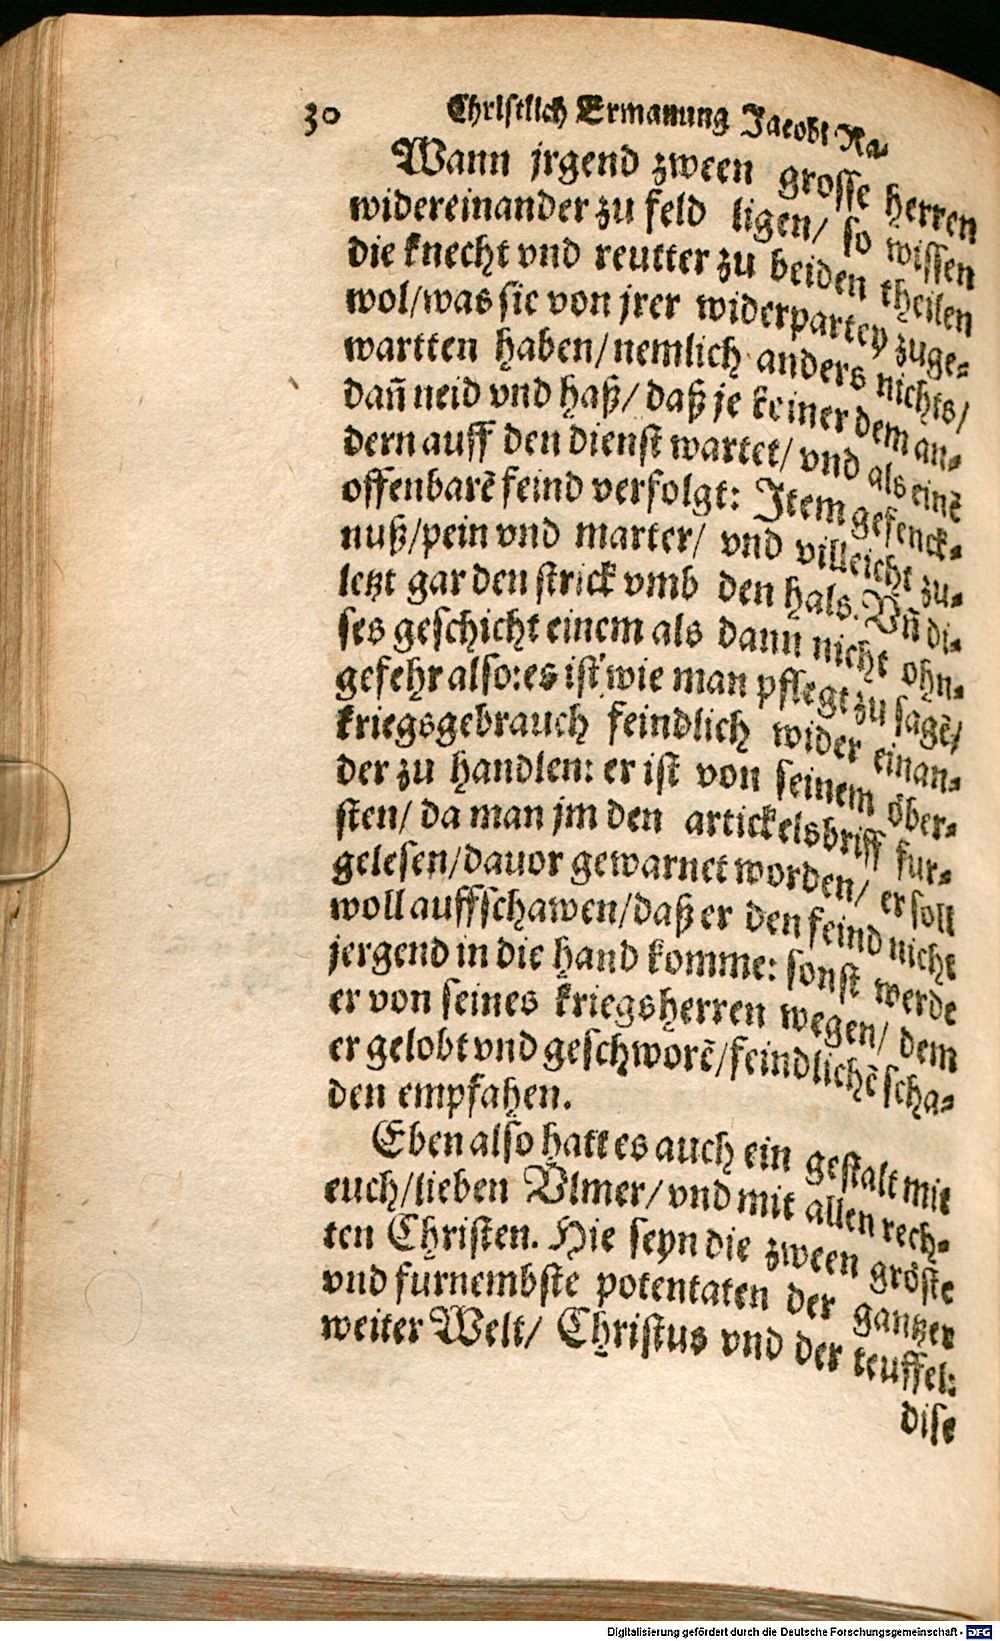 30 Christlich Ermanung Jacobi Ra-
Wann jrgend zween grosse herren
widereinander zu feld ligen/ so wissen
die knecht vnd reutter zu beiden theilen
wol/was sie von jrer widerpartey zuge-
wartten haben/nemlich anders nichts/
dañ neid vnd haß/ daß je keiner dem an-
dern auff den dienst wartet/ vnd als einē
offenbarē feind verfolgt: Item gefenck-
nuß/pein vnd marter/ vnd villeicht zu-
letzt gar den strick vmb den hals. Vñ di-
ses geschicht einem als dann nicht ohn-
gefehr also: es ist wie man pflegt zu sagē/
kriegsgebrauch feindlich wider einan-
der zu handlen: er ist von seinem öber-
sten/ da man jm den artickelsbriff fur-
gelesen/dauor gewarnet worden/ er soll
woll auffschawen/daß er den feind nicht
jergend in die hand komme: sonst werde
er von seines kriegsherren wegen/ dem
er gelobt vnd geschworē/feindlichē scha-
den empfahen.
Eben also hatt es auch ein gestalt mit
euch/lieben Vlmer/ vnd mit allen rech-
ten Christen. Hie seyn die zween gröste
vnd furnembste potentaten der gantzer
weiter Welt/ Christus vnd der teuffel:
dise
Digitalisierung gefördert durch die Deutsche Forschungsgemeinschaft - DFG